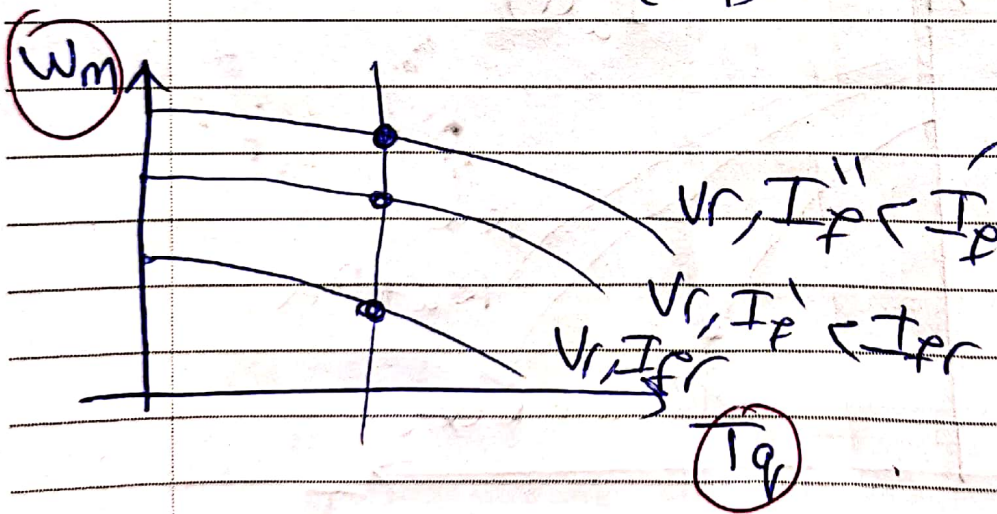 Wm
Vr, I''f < I'f
Vr, I'f < Ifr
Vr, Ifr
Tq